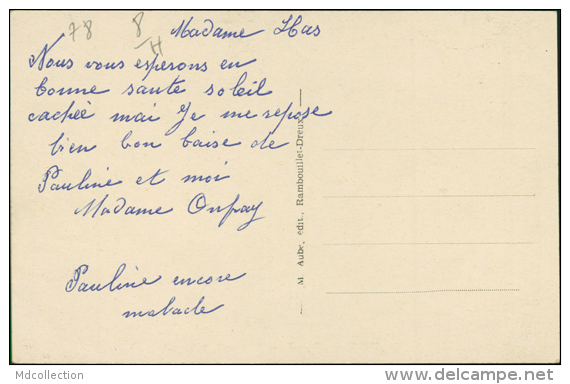 78
8
H
Madame Has
Nous vous esperons en
bonne sante soleil
cachée mai Je me repose
bien bon baise de
Pauline et moi
Madame Onfray
Pauline encore
malade
M. Aubé, édit., Rambouillet-Dreux.
Mdcollection
delcampe.net